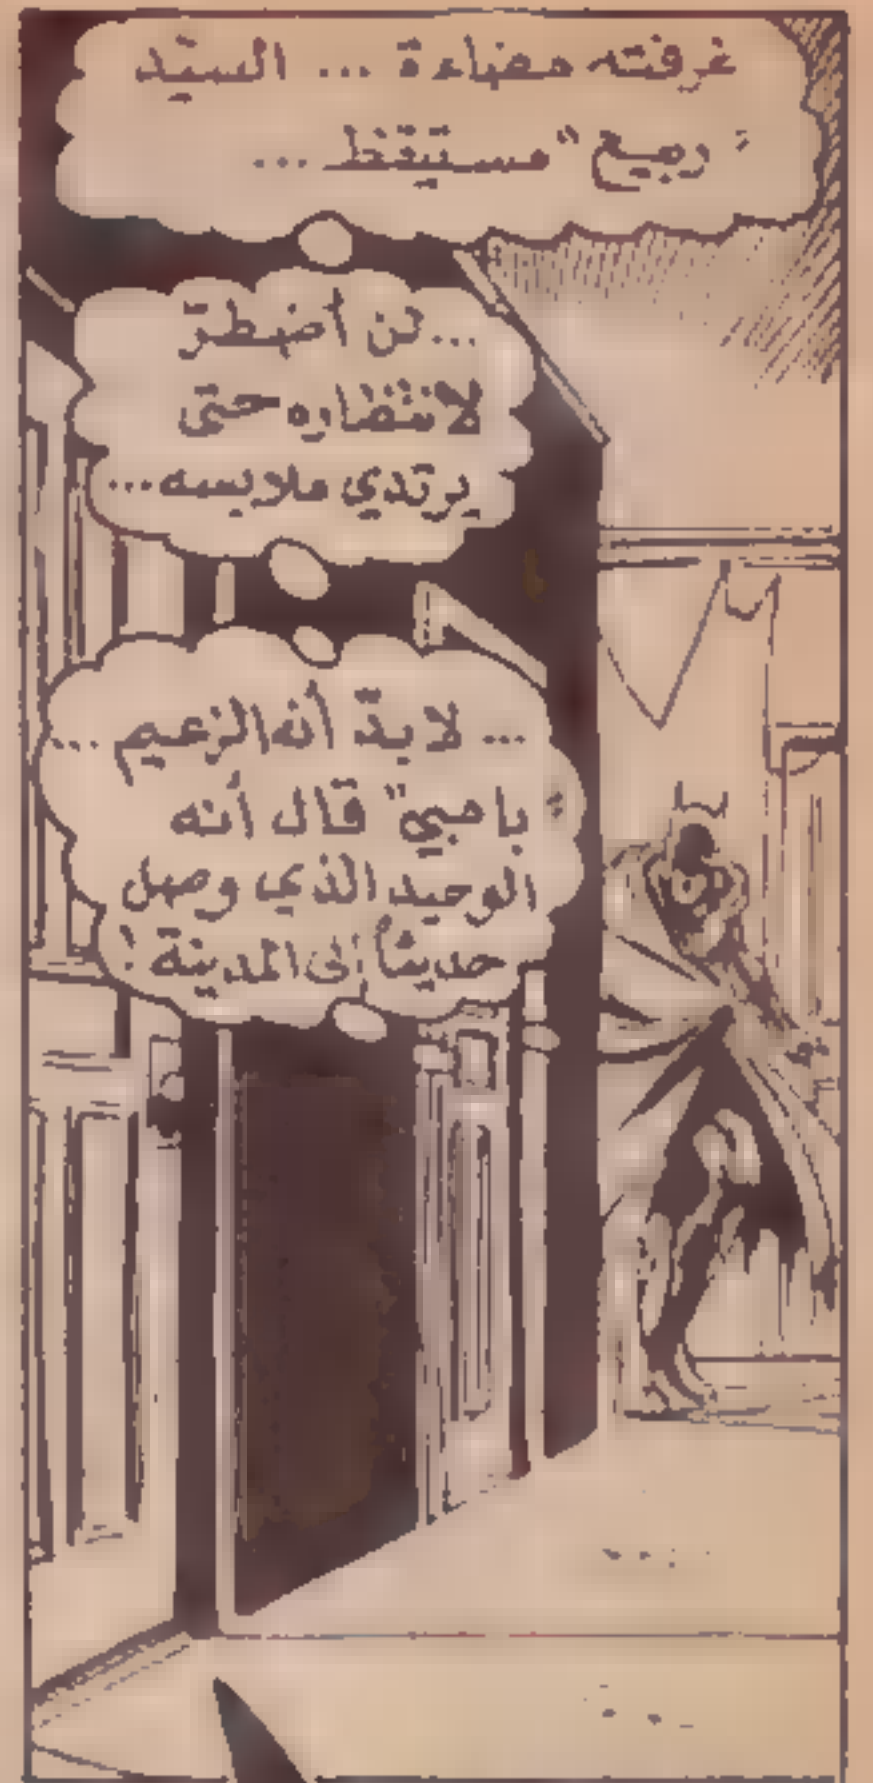 غرفته مضاءة ... السيّد
"ربيع" مستيقظ ...
...لن أضطرّ
لانتظاره حتى
يرتدي ملابسه...
... لابدّ أنه الزعيم ...
"باصبي" قال أنه
الوحيد الذي وصل
حديثاً إلى المدينة !